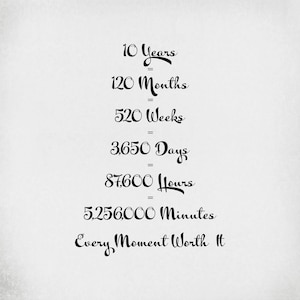 10 Years
=
120 Months
=
520 Weeks
=
3,650 Days
=
87,600 Hours
=
5,256,000 Minutes
Every Moment Worth It